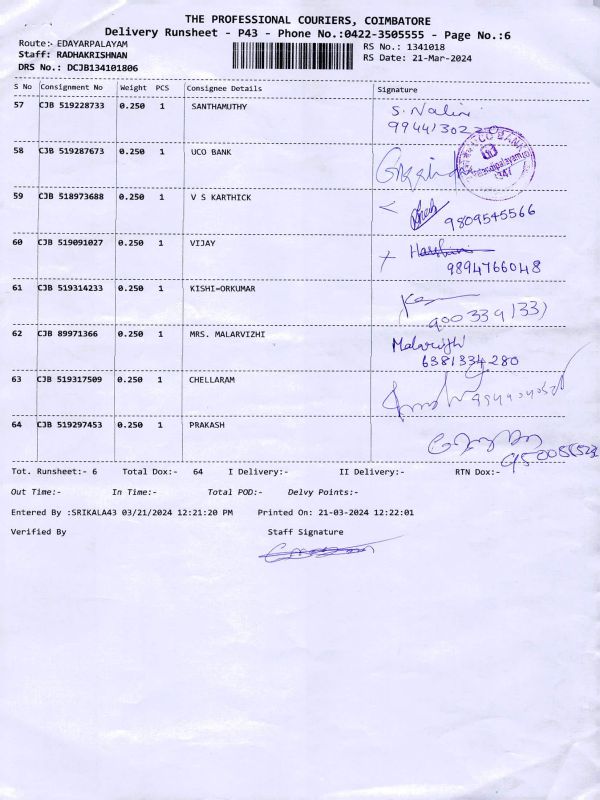 THE PROFESSIONAL COURIERS, COIMBATORE
Delivery Runsheet - P43 - Phone No.:0422-3505555 - Page No.:6
Route:- EDAYARPALAYAM
Staff: RADHAKRISHNAN
DRS No.: DCJB134101806
RS No.: 1341018
RS Date: 21-Mar-2024
S No Consignment No Weight PCS Consignee Details Signature
57 CJB 519228733 0.250 1 SANTHAMUTHY S. Nalini
58 CJB 519287673 0.250 1 UCO BANK
UCO BANK
59 CJB 518973688 0.250 1 V S KARTHICK
9809545566
60 CJB 519091027 0.250 1 VIJAY
9894766048
61 CJB 519314233 0.250 1 KISHI=ORKUMAR
62 CJB 89971366 0.250 1 MRS. MALARVIZHI
6381334280
63 CJB 519317509 0.250 1 CHELLARAM
64 CJB 519297453 0.250 1 PRAKASH
Tot. Runsheet:- 6 Total Dox:- 64 I Delivery:- II Delivery:- RTN Dox:-
Out Time:- In Time:- Total POD:- Delvy Points:-
Entered By :SRIKALA43 03/21/2024 12:21:20 PM Printed On: 21-03-2024 12:22:01
Verified By Staff Signature